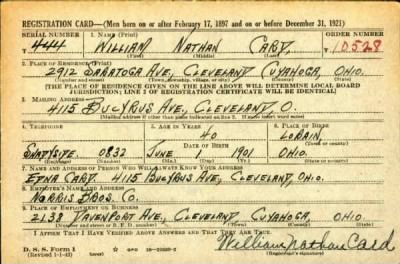 REGISTRATION CARD—(Men born on or after February 17, 1897 and on or before December 31, 1921)
SERIAL NUMBER 1. NAME (Print) ORDER NUMBER
444 WILLIAM NATHAN CARD 10528
(First) (Middle) (Last)
2. PLACE OF RESIDENCE (Print)
2912 SARATOGA AVE, CLEVELAND CUYAHOGA, OHIO.
(Number and street) (Town, township, village, or city) (County) (State)
[THE PLACE OF RESIDENCE GIVEN ON THE LINE ABOVE WILL DETERMINE LOCAL BOARD
JURISDICTION; LINE 2 OF REGISTRATION CERTIFICATE WILL BE IDENTICAL]
3. MAILING ADDRESS
4115 BUCYRUS AVE, CLEVELAND, O.
[Mailing address if other than place indicated on line 2. If same insert word same]
4. TELEPHONE 5. AGE IN YEARS 6. PLACE OF BIRTH
40 LORAIN
DATE OF BIRTH (Town or county)
SHADYSIDE 0832 JUNE 1 1901 OHIO.
(Exchange) (Number) (Mo.) (Day) (Yr.) (State or country)
7. NAME AND ADDRESS OF PERSON WHO WILL ALWAYS KNOW YOUR ADDRESS
EDNA CARD 4115 BUCYRUS AVE, CLEVELAND, OHIO.
8. EMPLOYER'S NAME AND ADDRESS
NORRIS BROS. CO.
9. PLACE OF EMPLOYMENT OR BUSINESS
2138 DAVENPORT AVE, CLEVELAND CUYAHOGA, OHIO.
(Number and street or R. F. D. number) (Town) (County) (State)
I AFFIRM THAT I HAVE VERIFIED ABOVE ANSWERS AND THAT THEY ARE TRUE.
D. S. S. Form 1
(Revised 1-1-42) (over) GPO
William Nathan Card
(Registrant's signature)